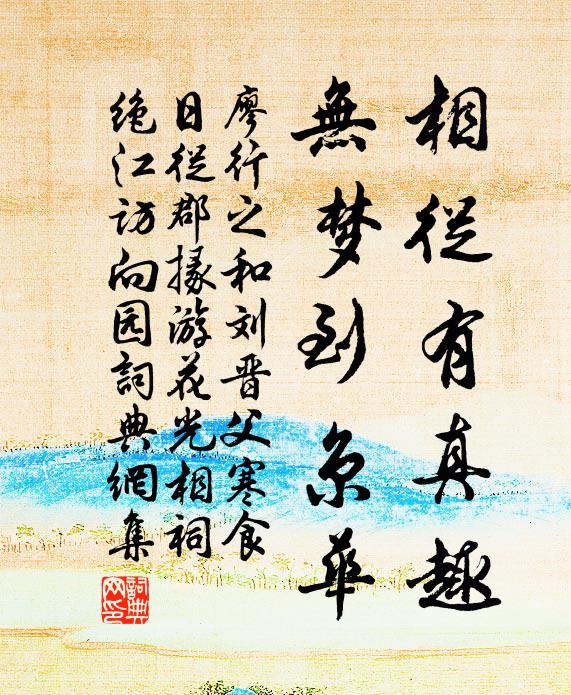 相從有真趣
無梦到京華
廖行之和刘晋父寒食
日從郡掾游花光相祠
绝江访向园詞典網集
詞典
网印